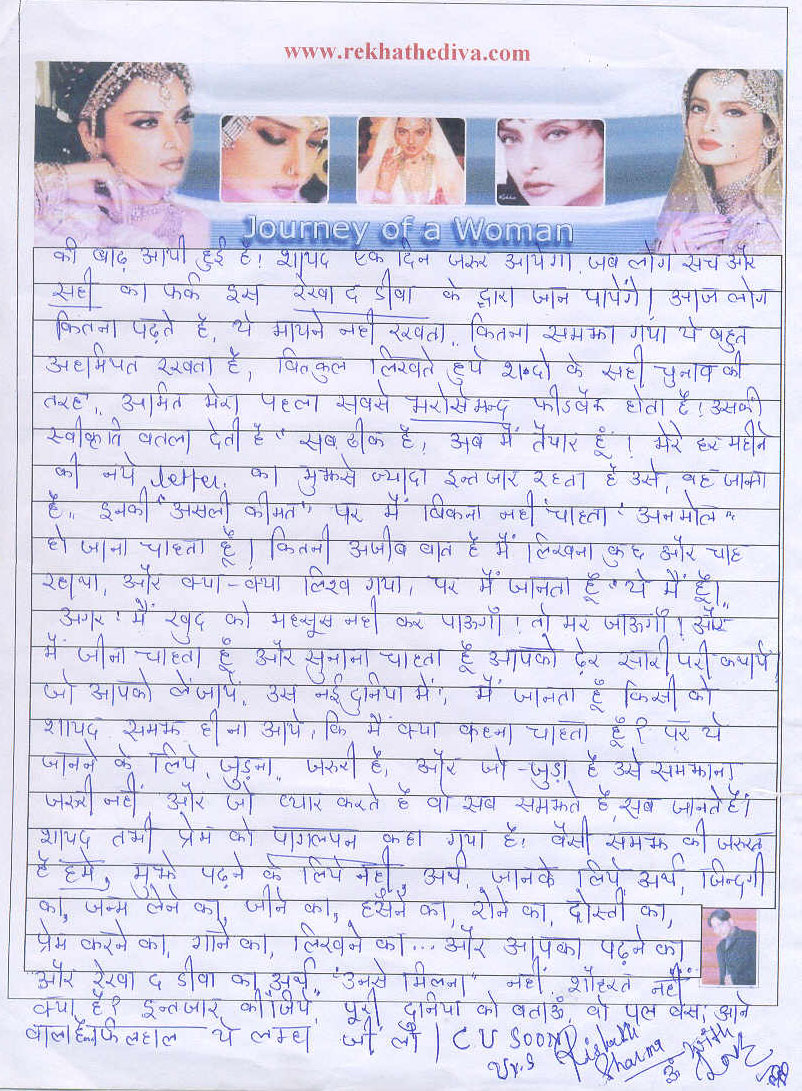 www.rekhathediva.com
Journey of a Woman
की बाढ़ आयी हुई है! शायद एक दिन जरुर आयेगा जब लोग सच और
सही का फर्क इस रेखा द डीवा के द्वारा जान पायेंगे। आज लोग
कितना पढ़ते है, ये मायने नही रखता, कितना समझा गया ये बहुत
अहमियत रखता है, बिलकुल लिखते हुये शब्दो के सही चुनाव की
तरह, अमित मेरा पहला सबसे भरोसेमन्द फीडबैक होता है! उसकी
स्वीकृति बतला देती है "सब ठीक है, अब मैं तैयार हूं! मेरे हर महीने
की नये letter का मुझसे ज्यादा इन्तजार रहता है उसे, वह जानता
है, इनकी "असली कीमत" पर मैं बिकना नही चाहता "अनमोल"
हो जाना चाहता हूँ। कितनी अजीब बात है मैं लिखना कुछ और चाह
रहा था, और क्या-क्या लिख गया, पर मैं जानता हूँ "ये मैं हूँ।"
अगर ! मैं खुद को महसूस नही कर पाऊगाँ ! तो मर जाऊगाँ ! और
मैं जीना चाहता हूँ और सुनाना चाहता हूँ आपको ढ़ेर सारी परी कथायें,
जो आपको ले जायें, उस नई दुनिया में!, मैं जानता हूँ किसी को
शायद समझ ही ना आये, कि मैं क्या कहना चाहता हूँ? पर ये
जानने के लिये, जुड़ना, जरुरी है, और जो-जुड़ा है उसे समझाना
जरूरी नही, और जो प्यार करते है वो सब समझते है, सब जानते है।
शायद तभी प्रेम को पागलपन कहा गया है! वैसी समझ की जरुरत
है हमे, मुझे पढ़ने के लिये नही, अर्थ, जानके लिये अर्थ, जिन्दगी
का, जन्म लेने का, जीने का, हँसने का, रोने का, दोस्ती का,
प्रेम करने का, गाने का, लिखने का... और आपका पढ़ने का
और रेखा द डीवा का अर्थ, "उनसे मिलना" नहीं, शौहरत नहीं
क्या है? इन्तजार कीजिये, पूरी दुनिया को बताऊँ, वो पल बस! आने
वाला है फिलहाल ये लम्हा जी लो | C U SOON
Ur.s Rishabh Sharma with Love
ॐ